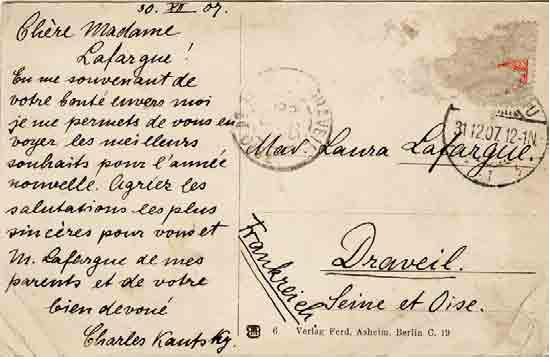 30. XII 07.
Chère Madame
Lafargue!
En me souvenant de
votre bonté envers moi
je me permets de vous en
voyer les meilleurs
souhaits pour l'année
nouvelle. Agréez les
salutations les plus
sincères pour vous et
M. Lafargue de mes
parents et de votre
bien devoué
Charles Kautsky.
DRAVEIL
31.12.07. 12-1N.
Mad. Laura Lafargue.
Draveil.
Seine et Oise.
Frankreich.
6 Verlag Ferd. Ashelm. Berlin C. 19